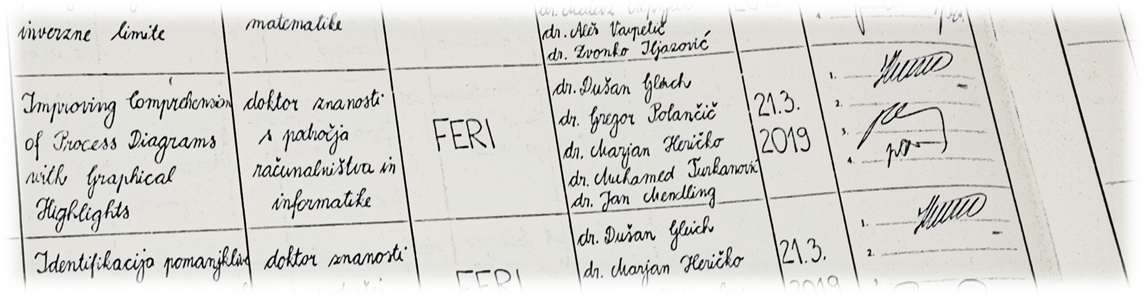 inverzne limite
matematike
dr. Aleš Vavpetič
dr. Zvonko Iljazović
Improving Comprehension
of Process Diagrams
with Graphical
Highlights
doktor znanosti
s področja
računalništva in
informatike
FERI
dr. Dušan Gleich
dr. Gregor Polančič
dr. Marjan Heričko
dr. Muhamed Turkanović
dr. Jan Mendling
21.3.
2019
1.
2.
3.
4.
Identifikacija pomanjkljivo
doktor znanosti
FERI
dr. Dušan Gleich
dr. Marjan Heričko
21.3.
2019
1.
2.